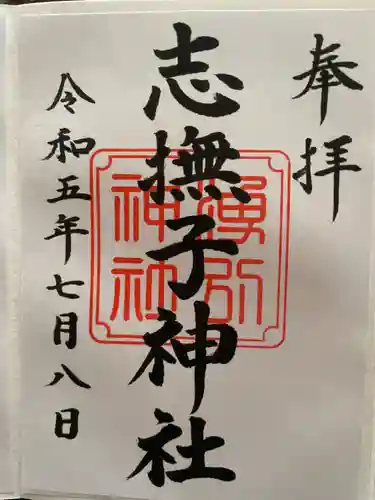 奉拝
志撫子神社
令和五年七月八日
神社